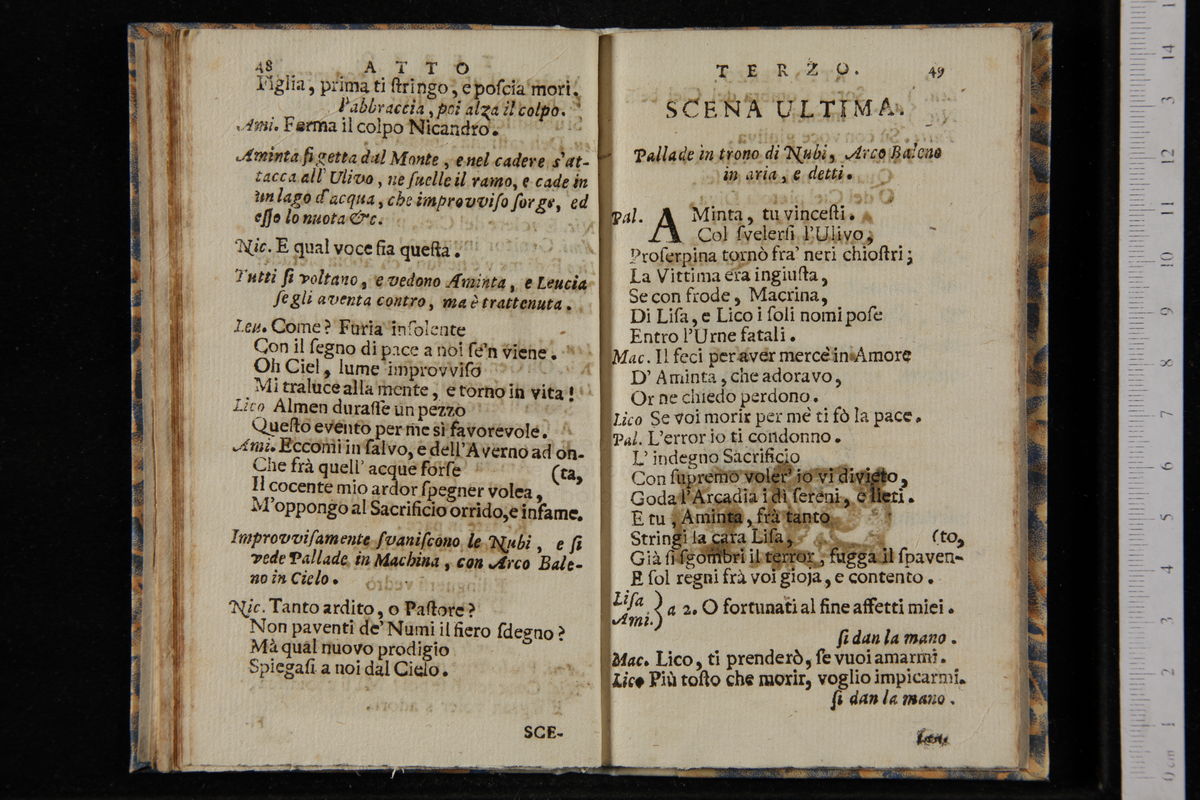 48 ATTO
Figlia, prima ti ſtringo, e poſcia mori.
l'abbraccia, poi alza il colpo.
Ami. Ferma il colpo Nicandro.
Aminta ſi getta dal Monte, e nel cadere s'at-
tacca all' Ulivo, ne ſuelle il ramo, e cade in
un lago d'acqua, che improvviſo ſorge, ed
eſſo lo nuota &c.
Nic. E qual voce fia queſta.
Tutti ſi voltano, e vedono Aminta, e Leucia
ſe gli aventa contro, ma è trattenuta.
Leu. Come? Furia inſolente
Con il ſegno di pace a noi ſe'n viene.
Oh Ciel, lume improvviſo
Mi traluce alla mente, e torno in vita!
Lico Almen duraſſe un pezzo
Queſto evento per me sì favorevole.
Ami. Eccomi in ſalvo, e dell'Averno ad on-
Che frà quell' acque forſe (ta,
Il cocente mio ardor ſpegner volea,
M'oppongo al Sacrificio orrido, e infame.
Improvviſamente ſvaniſcono le Nubi, e ſi
vede Pallade in Machina, con Arco Bale-
no in Cielo.
Nic. Tanto ardito, o Paſtore?
Non paventi de' Numi il fiero ſdegno?
Mà qual nuovo prodigio
Spiegaſi a noi dal Cielo.
SCE-
TERZO. 49
SCENA ULTIMA.
Pallade in trono di Nubi, Arco Baleno
in aria, e detti.
Pal. AMinta, tu vinceſti.
Col ſvelerſi l'Ulivo,
Proſerpina tornò fra' neri chioſtri;
La Vittima era ingiuſta,
Se con frode, Macrina,
Di Liſa, e Lico i ſoli nomi poſe
Entro l'Urne fatali.
Mac. Il feci per aver mercè in Amore
D' Aminta, che adoravo,
Or ne chiedo perdono.
Lico Se voi morir per mè ti fò la pace.
Pal. L'error io ti condonno.
L' indegno Sacrificio
Con ſupremo voler' io vi divieto,
Goda l'Arcadia i dì ſereni, e lieti.
E tu, Aminta, frà tanto
Stringi la cara Liſa, (to,
Già ſi ſgombri il terror, fugga il ſpaven-
E ſol regni frà voi gioja, e contento.
Liſa
Ami. } a 2. O fortunati al fine affetti miei.
ſi dan la mano.
Mac. Lico, ti prenderò, ſe vuoi amarmi.
Lico Più toſto che morir, voglio impicarmi.
ſi dan la mano.
Leu.